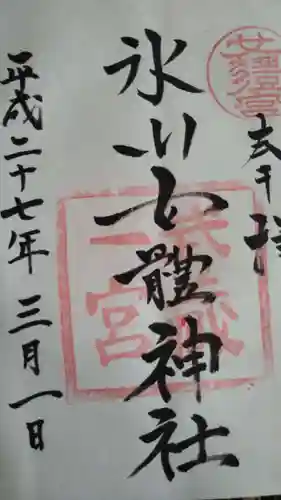 奉拝
氷川女體神社
武蔵
一宮
平成二十七年三月一日